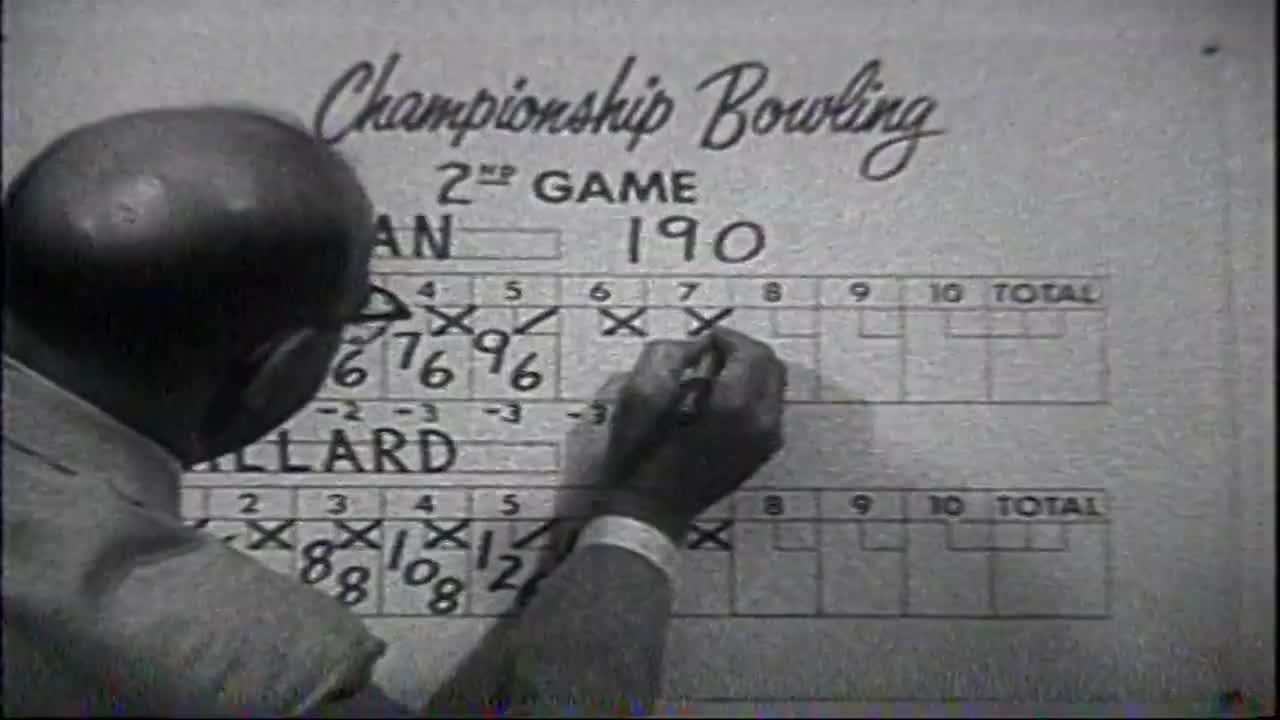 Championship Bowling
2ND GAME
AN 190
4 5 6 7 8 9 10 TOTAL
X / X X
6 76 96
-2 -3 -3 -3
LLARD
2 3 4 5 8 9 10 TOTAL
X X X / X
88 108 12